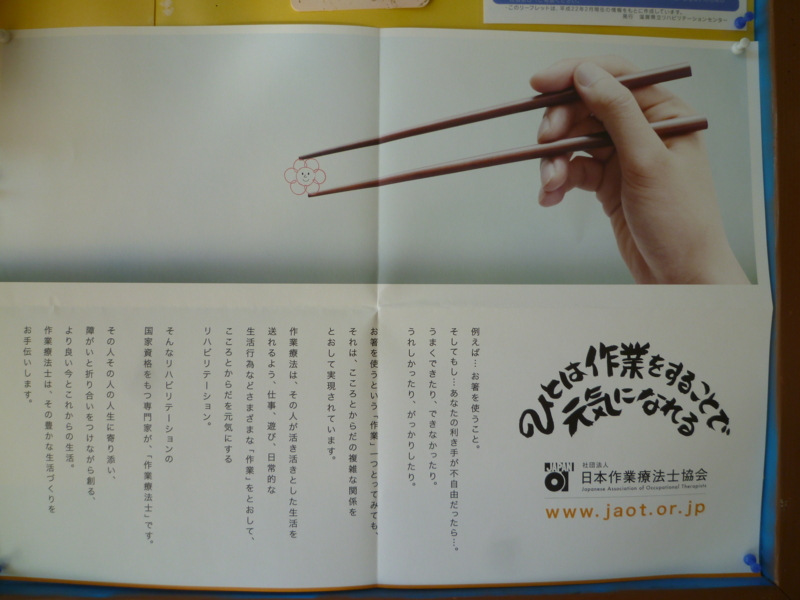 このリーフレットは、平成22年2月現在の情報をもとに作成しています。
発行　滋賀県立リハビリテーションセンター
ひとは作業をすることで
元気になれる
JAPAN
OT
社団法人
日本作業療法士協会
Japanese Association of Occupational Therapists
www.jaot.or.jp
例えば…お箸を使うこと。
そしてもし…あなたの利き手が不自由だったら…。
うまくできたり、できなかったり。
うれしかったり、がっかりしたり。
お箸を使うという「作業」一つとってみても、
それは、こころとからだの複雑な関係を
とおして実現されています。
作業療法は、その人が活き活きとした生活を
送れるよう、仕事、遊び、日常的な
生活行為などさまざまな「作業」をとおして、
こころとからだを元気にする
リハビリテーション。
そんなリハビリテーションの
国家資格をもつ専門家が、「作業療法士」です。
その人その人の人生に寄り添い、
障がいと折り合いをつけながら創る、
より良い今とこれからの生活。
作業療法士は、その豊かな生活づくりを
お手伝いします。